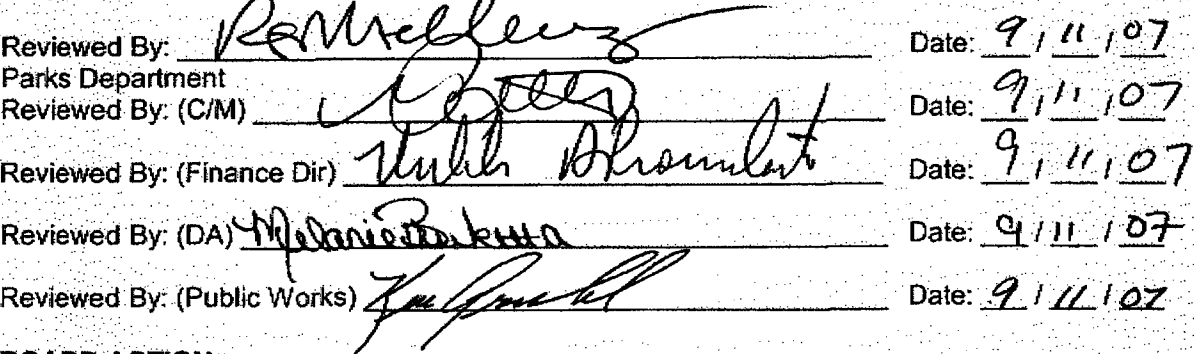 Reviewed By: Date: 9 / 11 / 07
Parks Department
Reviewed By: (C/M) Date: 9 / 11 / 07
Reviewed By: (Finance Dir) Date: 9 / 11 / 07
Reviewed By: (DA) Melanie Date: 9 / 11 / 07
Reviewed By: (Public Works) Date: 9 / 11 / 07
BOARD ACTION